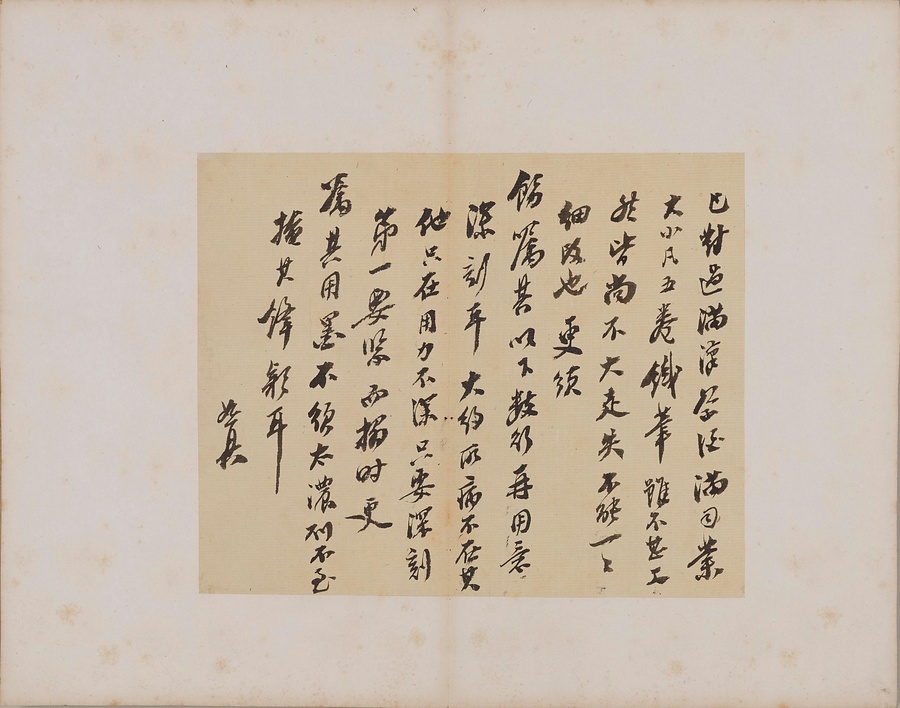 已對過滿漢祭酒滿司業
大小凡五卷鐵筆雖不甚工
然皆尚不大走失不能一一
細改也更須
飭囑其以下數行再用意
深刻耳大約所病不在其
他只在用力不深只要深刻
第一要緊而搨時更
囑其用墨不須太濃則不至
掩其鋒穎耳